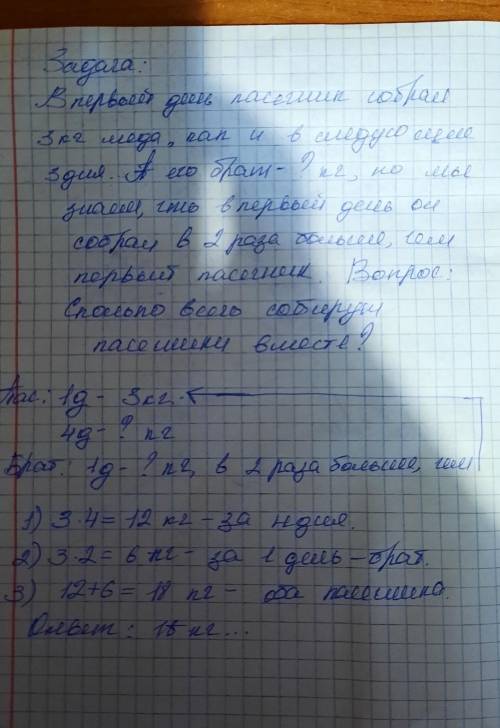 Задача:
В первый день пасечник собрал
3 кг меда, как и в следующие
3 дня. А его брат - ? кг, но мы
знаем, что в первый день он
собрал в 2 раза больше, чем
первый пасечник. Вопрос:
Сколько всего соберут
пасечники вместе?
Пас.: 1д - 3 кг.
4д - ? кг
Брат: 1д - ? кг, в 2 раза больше, чем
1) 3·4 = 12 кг - за 4 дня.
2) 3·2 = 6 кг - за 1 день - брат.
3) 12+6 = 18 кг - оба пасечника.
Ответ: 18 кг...